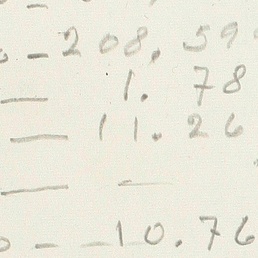 - 208.59
— 1.78
— 11.26
— —
- - 10.76